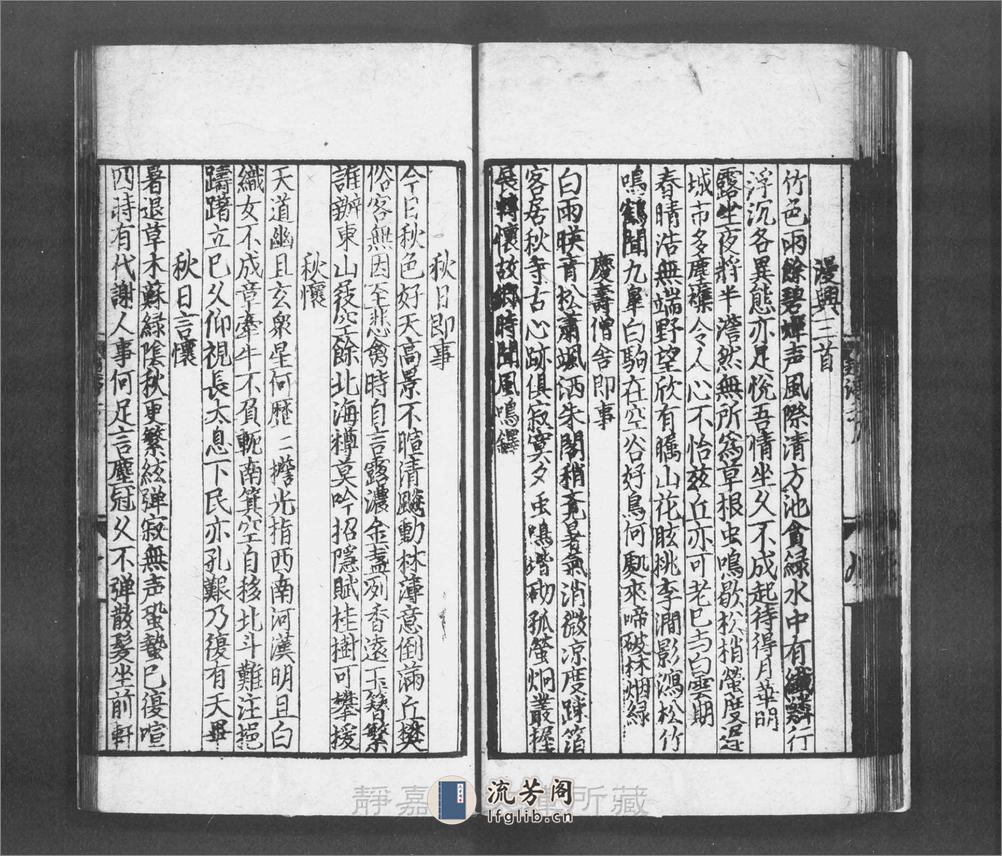 漫興三首
竹色雨餘碧蟬声風際清方池貪綠水中有纖鱗行
浮沉各異態亦足悦吾情坐久不成起待得月華明
露坐夜將半澹然無所為草根虫鳴歇松梢螢度遲
城市多塵襟令人心不怡玆丘亦可老已与白雲期
春晴浩無端野望欣有矚山花眩桃李澗影鴻松竹
鳴鶴聞九皐白駒在空谷好鳥何颿來啼破林烟綠
慶壽僧舍即事
白雨映青松蕭颯洒朱閣稍覺暑氣消微凉度踈箔
客居秋寺古心跡俱寂寞夕虫鳴堦砌孤螢炯叢握
展轉懷故鄉時聞風鳴鐸
秋日即事
今日秋色好天高景不暄清飈動林薄意倒滿丘樊
俗客無因至悲禽時自言露濃金盞列香遠玉簪繁
誰辦東山妓空餘北海樽莫吟招隱賦桂樹可攀援
秋懷
天道幽且玄衆星何歷二攙光指西南河漢明且白
織女不成章牽牛不負軛南箕空自移北斗難注挹
躊躇立已久仰視長太息下民亦孔艱乃復有天畢
秋日言懷
暑退草木蘇綠陰秋更繁絃弹寂無声蛩蟄已復喧
四時有代謝人事何足言塵冠久不弹散髮坐前軒
靜嘉
所藏
流芳阁
lfglib.cn